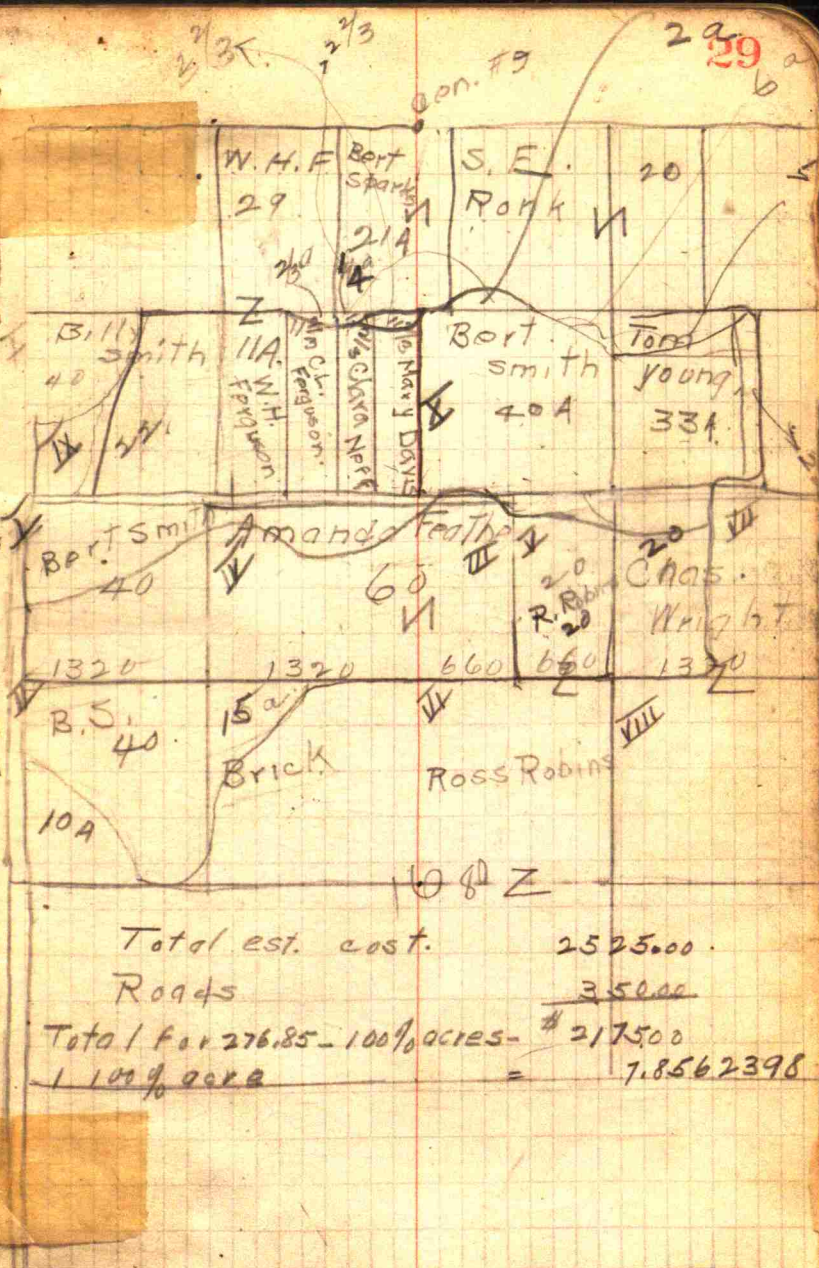 29
2a
6 a
2/3
1 2/3
Con. #9
W. H. F
29
Bert
Sparks
21A
S. E.
Ronk
20
Z
Billy
Smith
40
IX
22
11A.
W.H.
Ferguson
Wm C.L.
Ferguson.
Clara Noff
Mary Davis
X
Bert
Smith
40A
Tom
young
33A
V
Bert Smith
40
Amanda Feathe
IV
60
III
V
20
R. Robins
20
20
Chas.
Wright
VII
1320
1320
660
660
1320
Z
Z
II
B.S.
40
10A
15 a
Brick
VI
Ross Robins
VIII
168 A Z
Total est. cost. 2525.00
Roads 350.00
Total for 276.85 - 100% acres - $ 2175.00
1 100% acre = 7.8562398